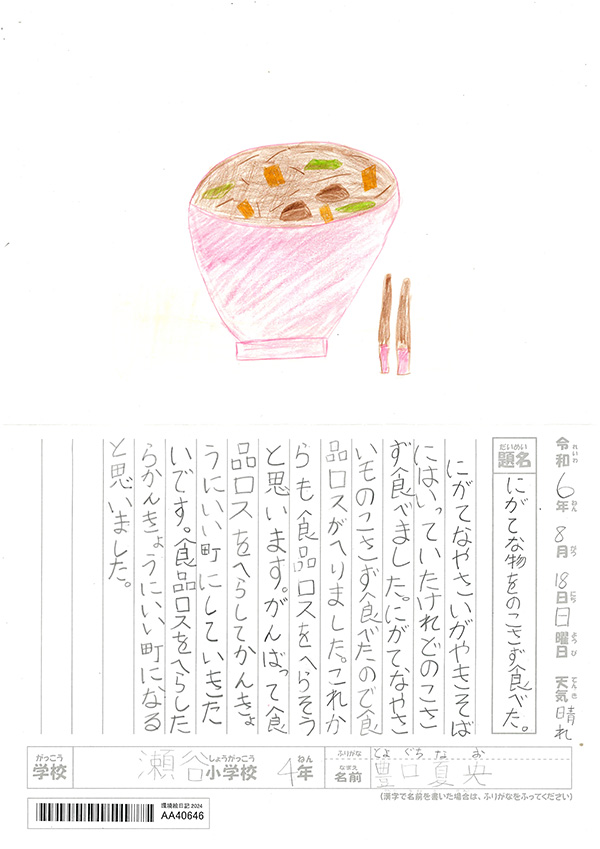 れいわ ねん がつ にち ようび てんき
令和6年8月18日日曜日 天気 晴れ
だいめい
題名 にがてな物をのこさず食べた。
にがてなやさいがやきそば
にはいっていたけれどのこさ
ず食べました。にがてなやさ
いものこさず食べたので食
品ロスがへりました。これか
らも食品ロスをへらそう
と思います。がんばって食
品ロスをへらしてかんきょ
うにいい町にしていきた
いです。食品ロスをへらした
らかんきょうにいい町になる
と思いました。
がっこう しょうがっこう ねん ふりがな とよ ぐち な お
学校 瀬谷小学校 4年 なまえ 名前 豊口夏央
(漢字で名前を書いた場合は、ふりがなをふってください)
環境絵日記2024
AA40646